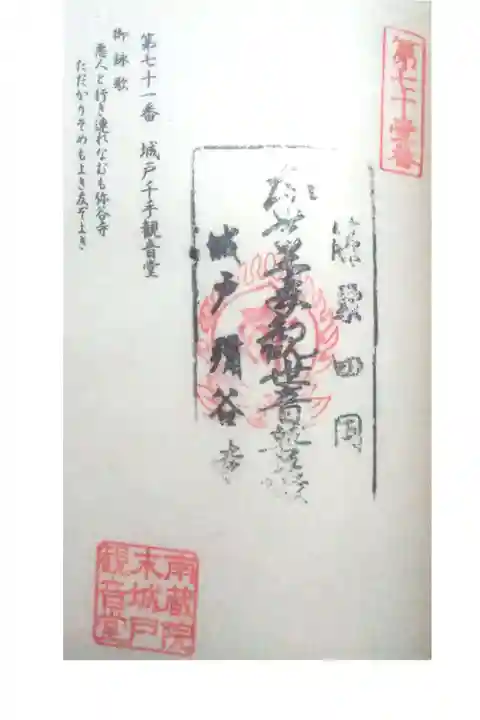 第七十壹番
篠栗四国
千手観世音菩薩
城戸彌谷寺
第七十一番 城戸千手観音堂
御詠歌
悪人と行き連れなむも弥谷寺
ただかりそめもよき友ぞよき
南蔵院
末城戸
観音堂